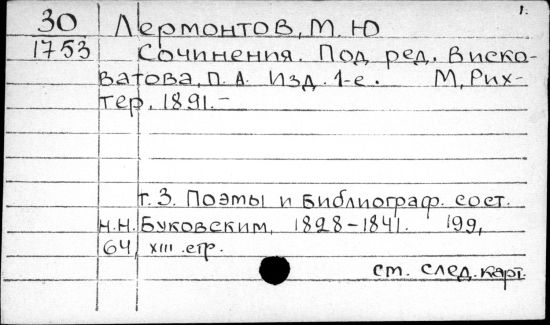 1.
30 Лермонтов, М. Ю
1753 Сочинения. Под ред. Виско-
ватова, П. А. Изд. 1-е. М, Рих-
тер, 1891.-
т. 3. Поэмы и Библиограф. сост.
Н.Н. Буковским, 1828-1841. 199,
64, XIII стр.
ст. след. карт.